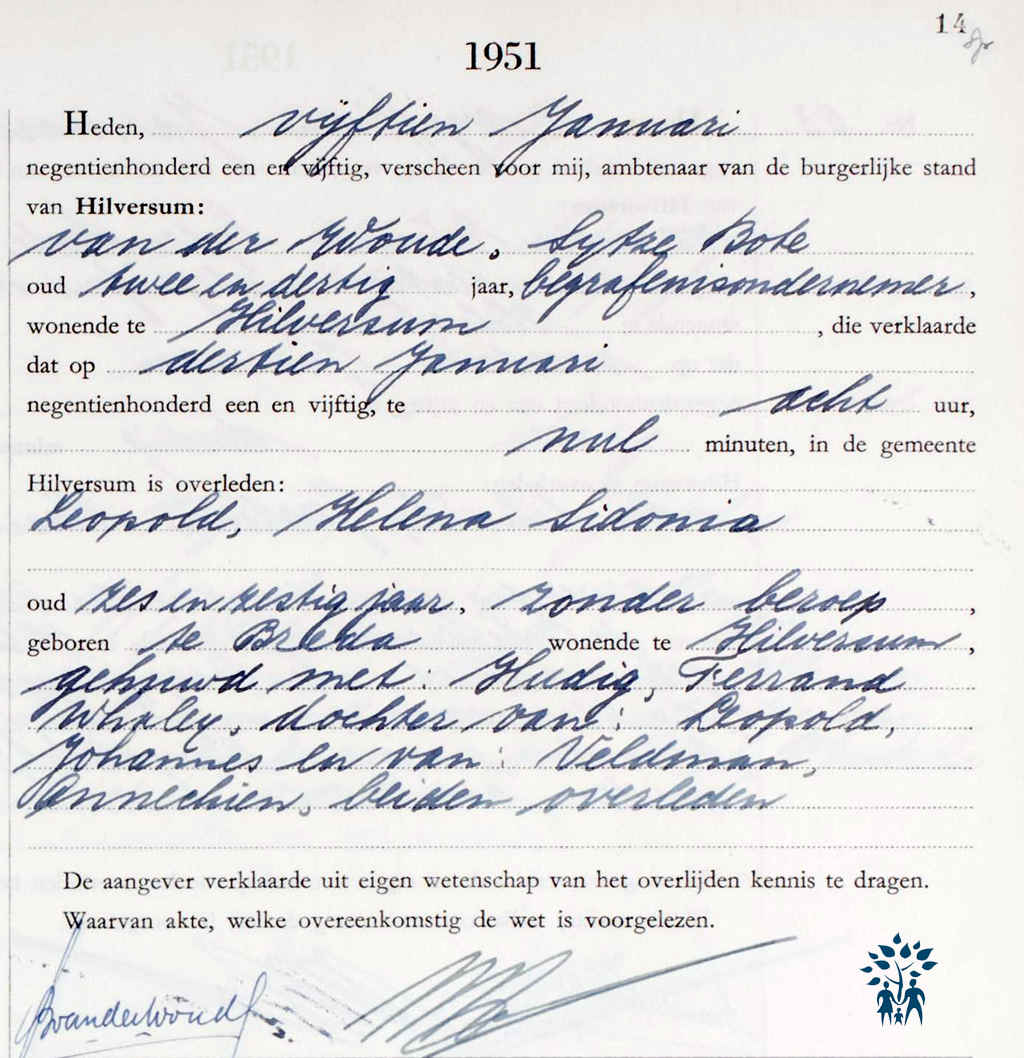 14
1951
Heden, vijftien Januari
negentienhonderd een en vijftig, verscheen voor mij, ambtenaar van de burgerlijke stand
van Hilversum:
van der Woude, Sytze Bote
oud twee en dertig jaar, begrafenisondernemer,
wonende te Hilversum, die verklaarde
dat op dertien Januari
negentienhonderd een en vijftig, te acht uur,
nul minuten, in de gemeente
Hilversum is overleden:
Leopold, Helena Sidonia
oud zes en zestig jaar, zonder beroep,
geboren te Breda wonende te Hilversum,
gehuwd met: Hudig, Ferrand
Whaley, dochter van: Leopold,
Johannes en van: Veldman,
Annechien, beiden overleden
De aangever verklaarde uit eigen wetenschap van het overlijden kennis te dragen.
Waarvan akte, welke overeenkomstig de wet is voorgelezen.
SBvanderWoude